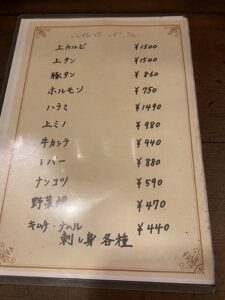 上カルビ ¥1500
上タン ¥1540
豚タン ¥860
ホルモン ¥750
ハラミ ¥1490
上ミノ ¥980
牛カシラ ¥940
レバー ¥880
ナンコツ ¥590
野菜焼 ¥470
キムチ・ナムル ¥440
刺し身 各種